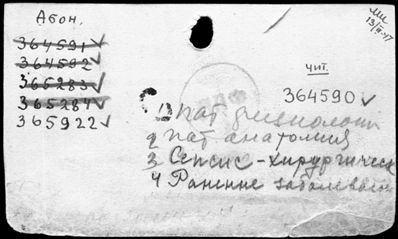 Абон.
364591 ✓
364592 ✓
365283 ✓
365284 ✓
365922 ✓
чит.
364590 ✓
1) пат физиологи
2 пат анатомия
3 Сепсис - хирургическ
4 Ранение